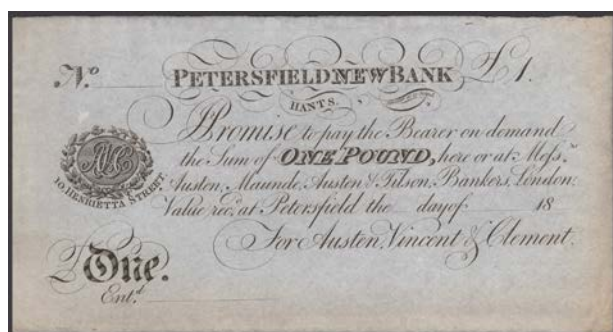 No PETERSFIELD NEW BANK £1.
HANTS.
I Promise to pay the Bearer on demand
the Sum of ONE POUND, here or at Messrs
Austen, Maunde, Austen & Tilson, Bankers, London:
Value recd. at Petersfield the day of 18
10. HENRIETTA STREET.
For Austen, Vincent & Clement.
£ One.
Entd.